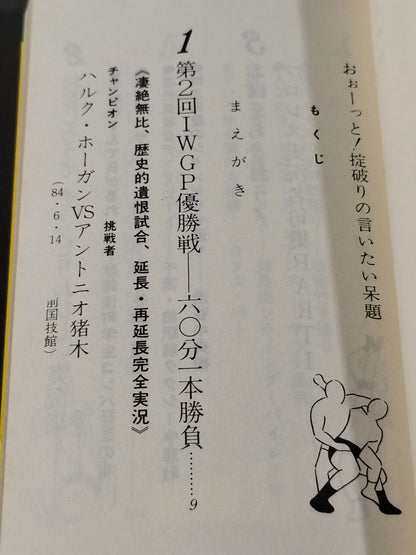 おぉーっと!掟破りの言いたい呆題
もくじ
まえがき
1 第2回IWGP優勝戦──六〇分一本勝負………9
《凄絶無比、歴史的遺恨試合、延長・再延長完全実況》
チャンピオン 挑戦者
ハルク・ホーガンVSアントニオ猪木
(84・6・14 前国技館)